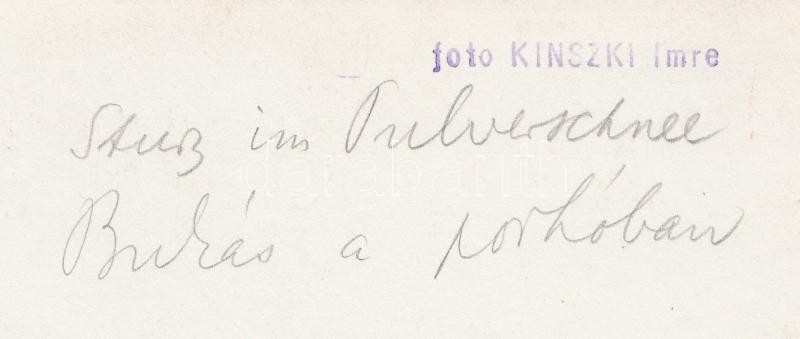 foto KINSZKI Imre
Sturz im Pulverschnee
darabanth
Bukás a porhóban